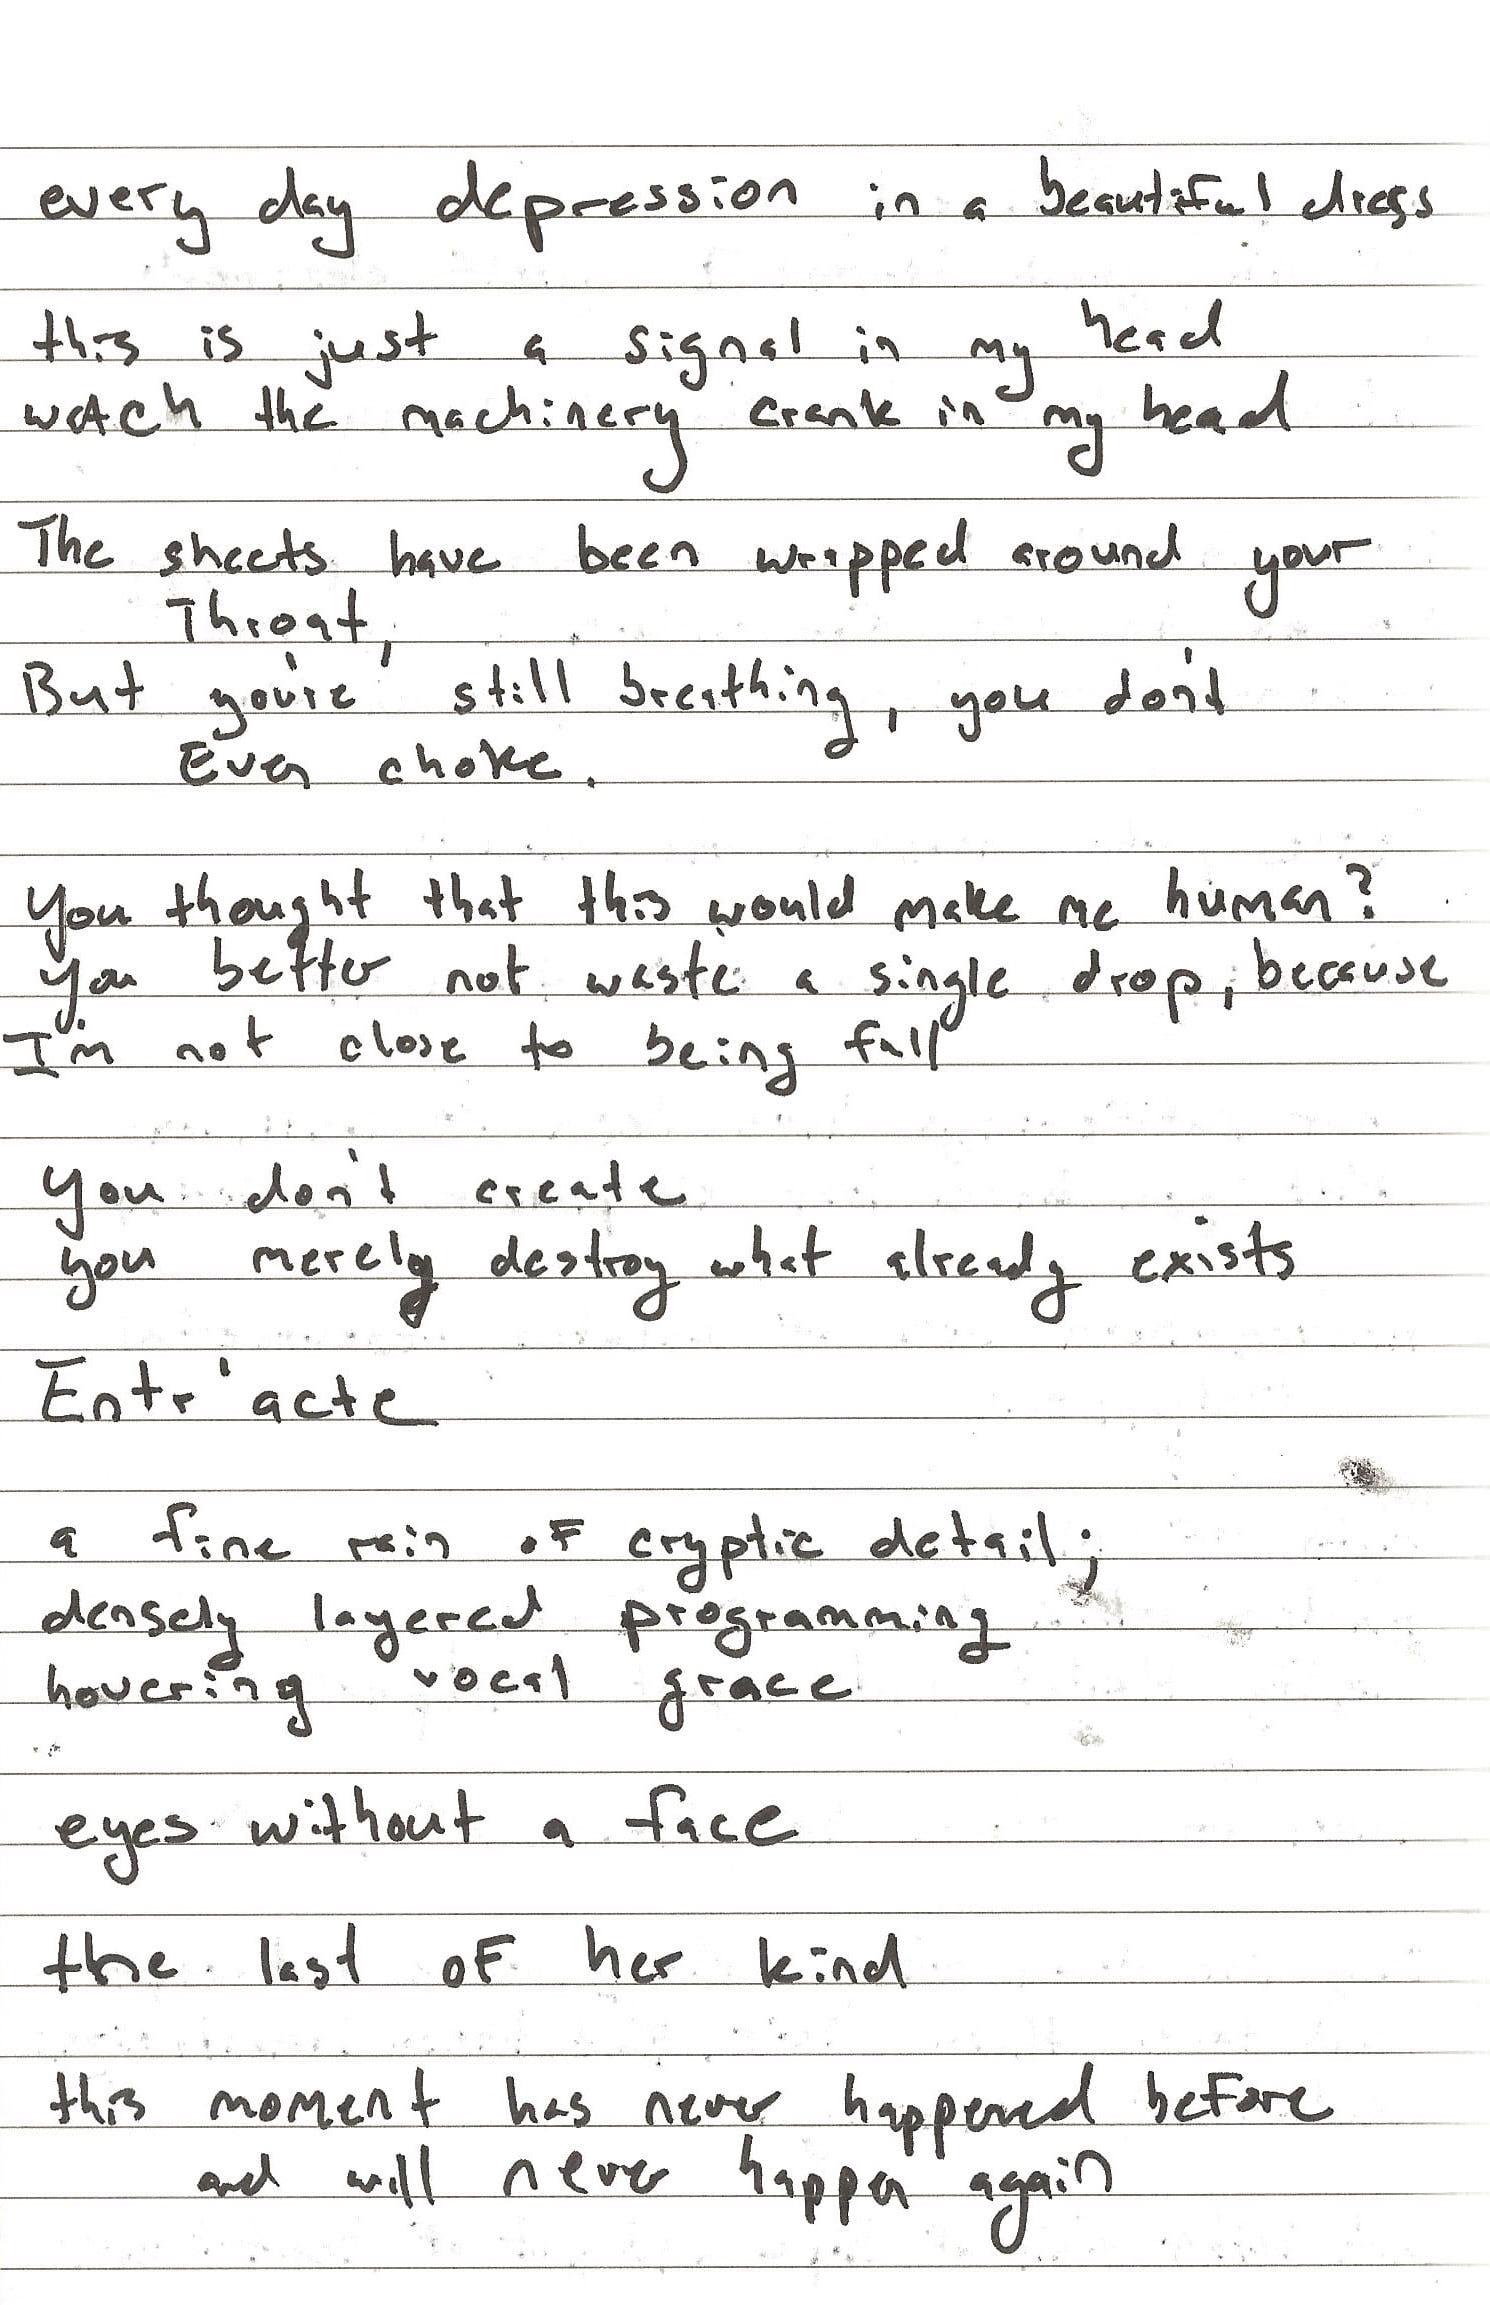 every day depression in a beautiful dress
this is just a signal in my head
watch the machinery crank in my head
The sheets have been wrapped around your
Throat,
But you're still breathing, you don't
Even choke.
You thought that this would make me human?
You better not waste a single drop, because
I'm not close to being full
you don't create
you merely destroy what already exists
Entr'acte
a fine rain of cryptic detail;
densely layered programming
hovering vocal grace
eyes without a face
the last of her kind
this moment has never happened before
and will never happen again